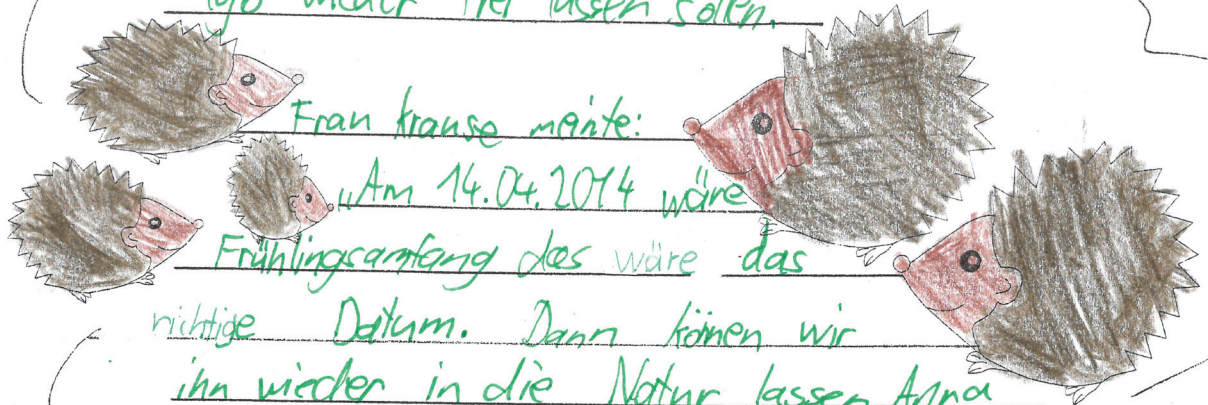 wieder frei lassen sollen.
Frau krause meinte:
„Am 14.04.2014 wäre
Frühlingsamfang das wäre das
richtige Datum. Dann könen wir
ihn wieder in die Natur lassen Anna